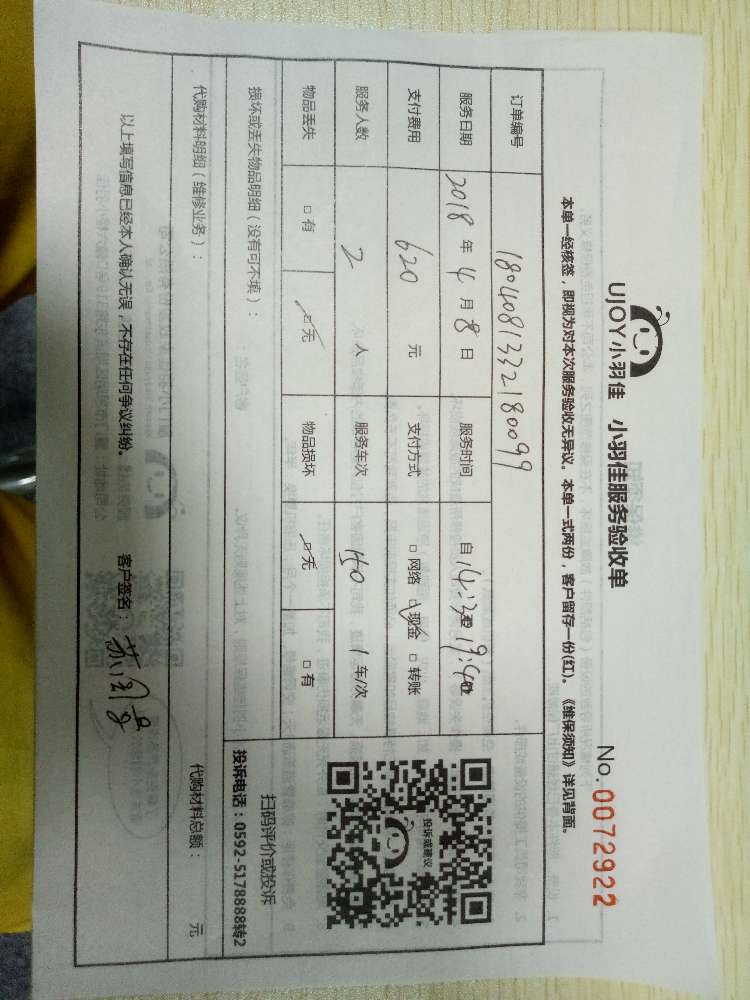 UJOY小羽佳 小羽佳服务验收单
No. 0072922
本单一经核签，即视为对本次服务验收无异议。本单一式两份，客户留存一份(红)。《维保须知》详见背面。
订单编号 18040813322180099
服务日期 2018 年 4 月 8 日 服务时间 自 14:30至 19:40止
支付费用 620 元 支付方式 □ 网络 □ 现金 □ 转账
服务人数 2 人 服务车次 1 车/次
物品丢失 □ 有 □ 无 物品损坏 □ 无 □ 有
投诉或建议
扫码评价或投诉
投诉电话：0592-5178888转2
损坏或丢失物品明细（没有可不填）：
代购材料明细（维修业务）： 代购材料总额： 元
以上填写信息已经本人确认无误，不存在任何争议纠纷。 客户签名：